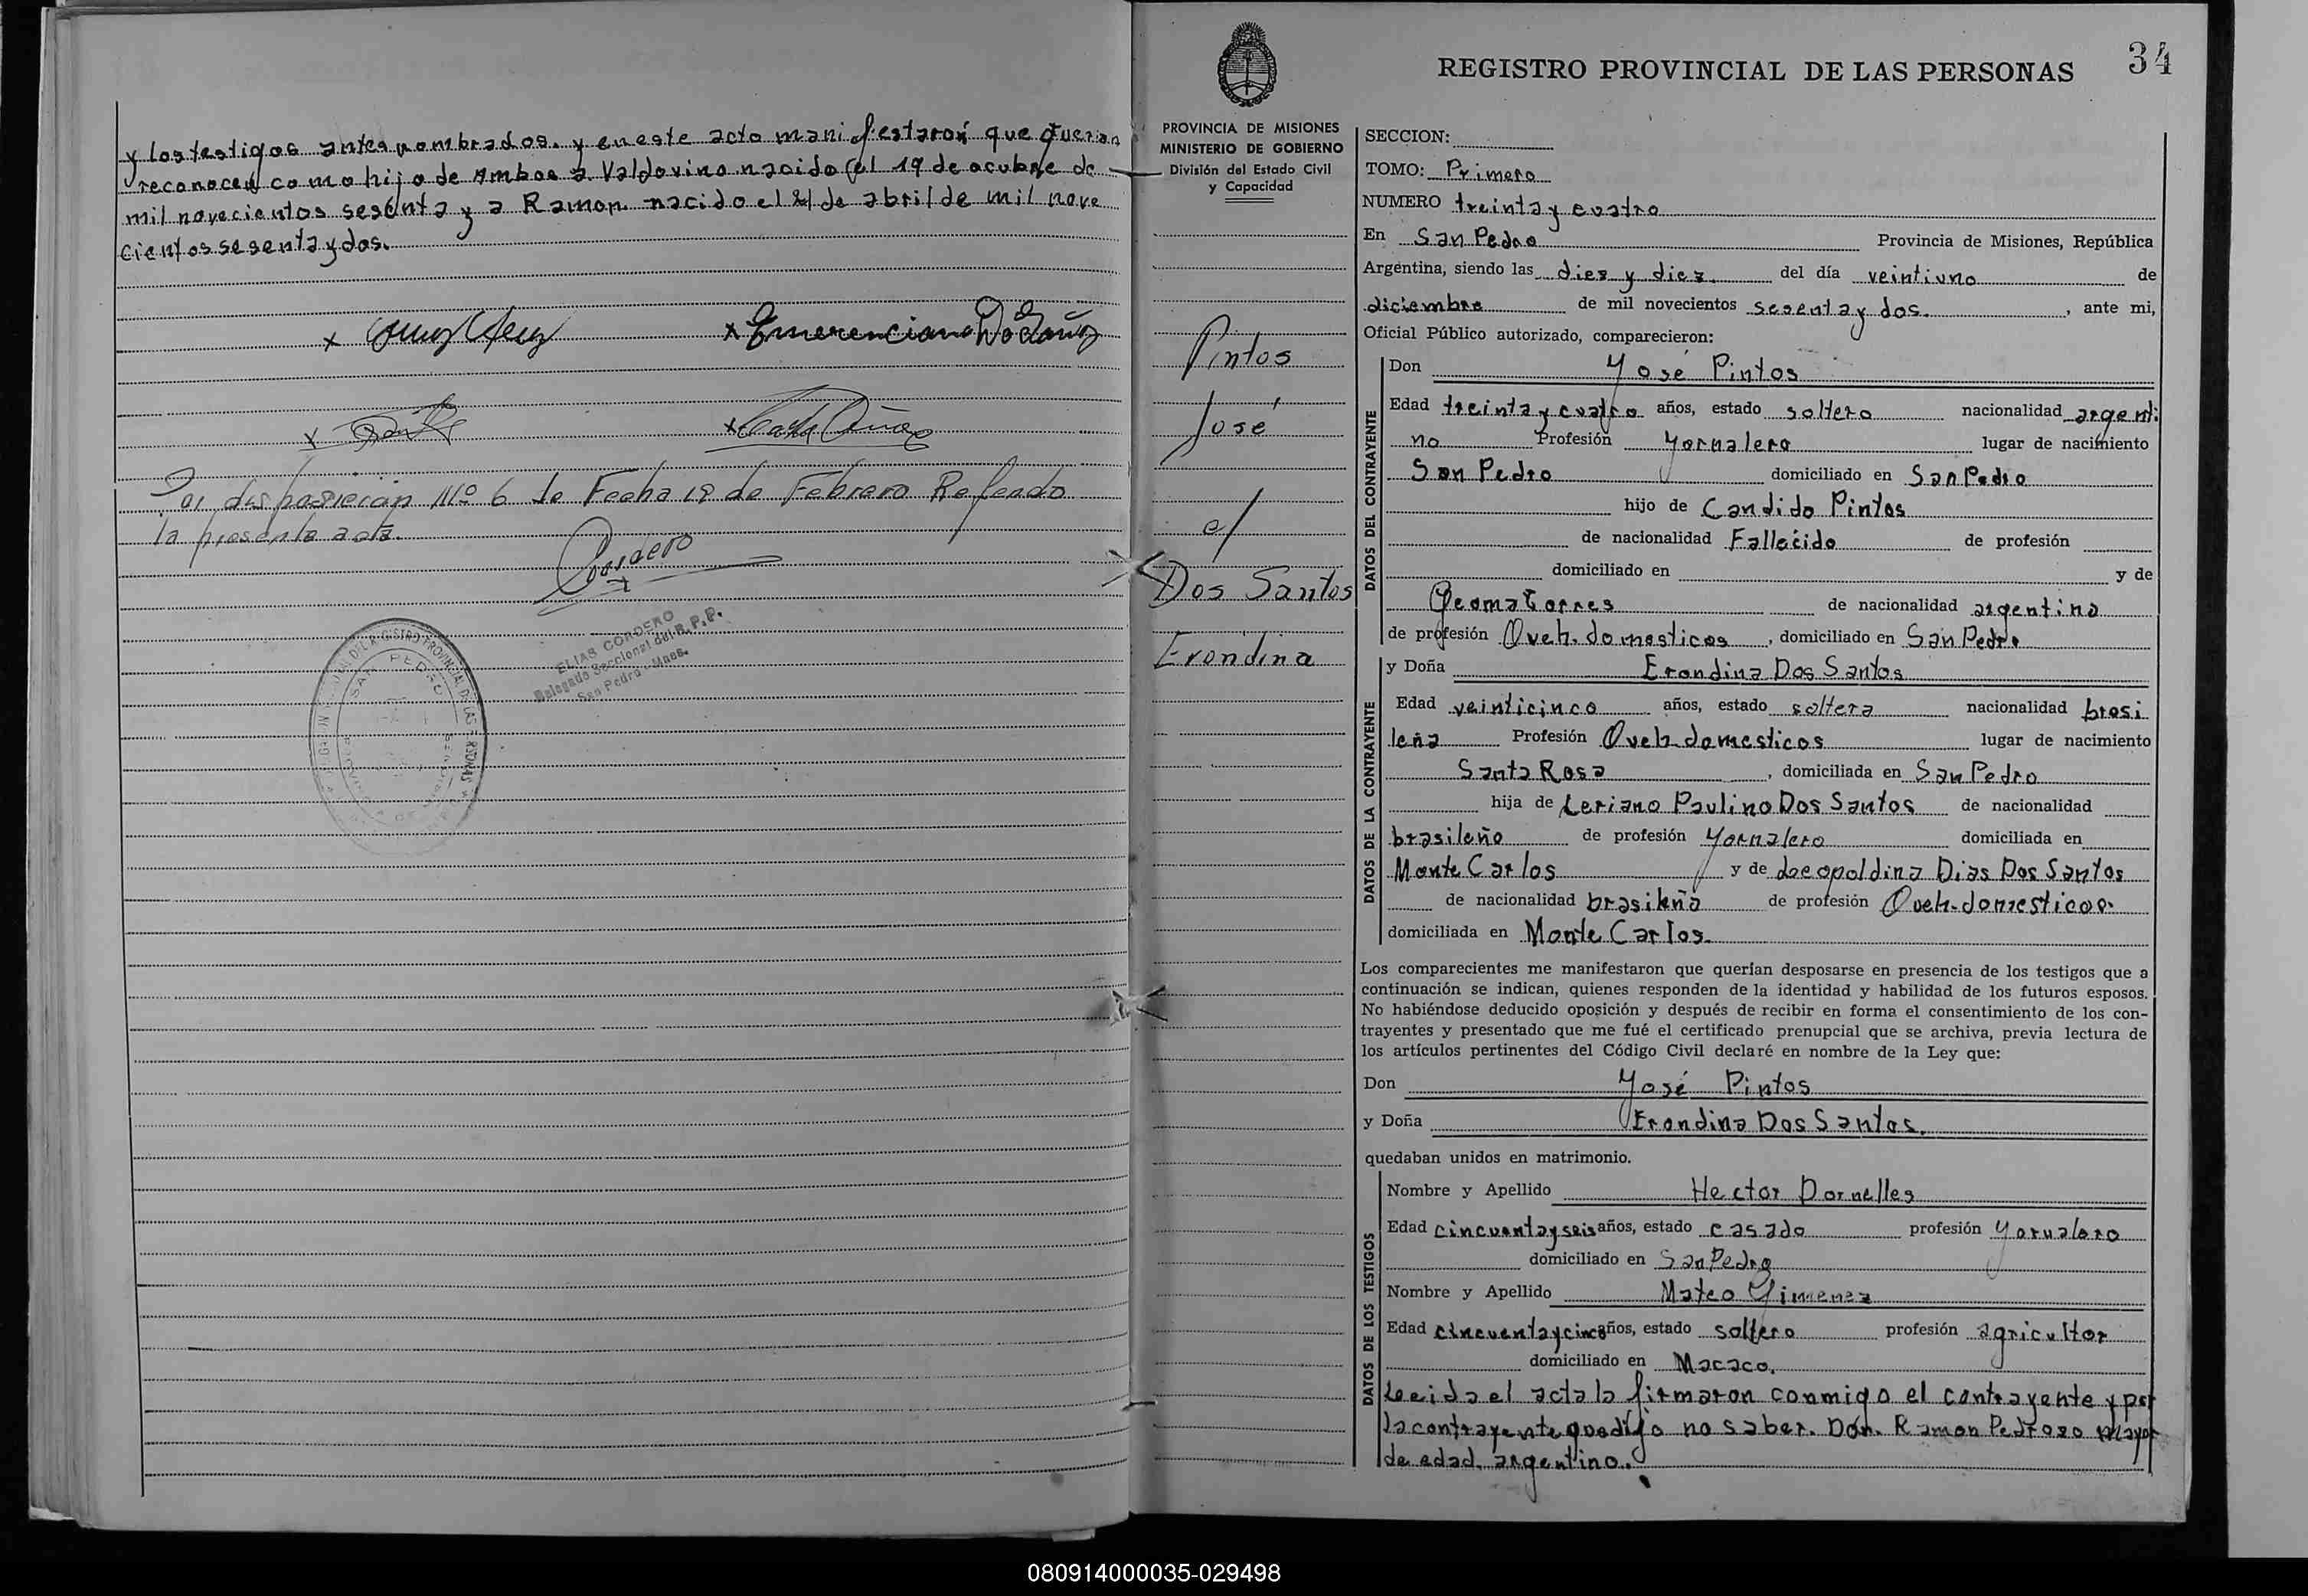 y los testigos antes nombrados. y en este acto manifestaron que querian
reconocer como hijo de Ambos a Valdovino nacido el 19 de ocubre de
mil novecientos sesenta y a Ramon nacido el de abril de mil nove
cientos sesenta y dos.
Por disposicion Nº 6 de Fecha 18 de Febrero Refrendo
la presente acta.
Cordero
ELIAS CORDERO
Delegado Seccional del R.P.P.
San Pedro - Mnes.
SAN PEDRO
PROVINCIA DE MISIONES
MINISTERIO DE GOBIERNO
División del Estado Civil
y Capacidad
Pintos
José
c/
Dos Santos
Erondina
REGISTRO PROVINCIAL DE LAS PERSONAS 34
SECCION:
TOMO: Primero
NUMERO treinta y cuatro
En San Pedro Provincia de Misiones, República
Argentina, siendo las diez y diez. del día veintiuno de
diciembre de mil novecientos sesenta y dos. , ante mi,
Oficial Público autorizado, comparecieron:
DATOS DEL CONTRAYENTE
Don Yosé Pintos
Edad treinta y cuatro años, estado soltero nacionalidad argenti
no Profesión Yornalero lugar de nacimiento
San Pedro domiciliado en San Pedro
hijo de Candido Pintos
de nacionalidad Fallecido de profesión
domiciliado en y de
Torres de nacionalidad argentina
de profesión Queh. domesticos , domiciliado en San Pedro
DATOS DE LA CONTRAYENTE
y Doña Erondina Dos Santos
Edad veinticinco años, estado soltera nacionalidad brasi
leña Profesión Queh. domesticos lugar de nacimiento
Santa Rosa , domiciliada en San Pedro
hija de Leriano Paulino Dos Santos de nacionalidad
brasileño de profesión Yornalero domiciliada en
Monte Carlos y de Leopoldina Dias Dos Santos
de nacionalidad brasileña de profesión Queh. domesticos
domiciliada en Monte Carlos.
Los comparecientes me manifestaron que querían desposarse en presencia de los testigos que a
continuación se indican, quienes responden de la identidad y habilidad de los futuros esposos.
No habiéndose deducido oposición y después de recibir en forma el consentimiento de los con-
trayentes y presentado que me fué el certificado prenupcial que se archiva, previa lectura de
los artículos pertinentes del Código Civil declaré en nombre de la Ley que:
Don Yosé Pintos
y Doña Erondina Dos Santos.
quedaban unidos en matrimonio.
DATOS DE LOS TESTIGOS
Nombre y Apellido Hector Dornelles
Edad cincuenta y seis años, estado casado profesión Yornalero
domiciliado en San Pedro
Nombre y Apellido Mateo Gimenez
Edad cincuenta y cinco años, estado soltero profesión agricultor
domiciliado en Macaco.
Leida el acta la firmaron conmigo el contrayente y por
la contrayente que dijo no saber. Don. Ramon Pedrozo mayor
de edad. argentino.
080914000035-029498